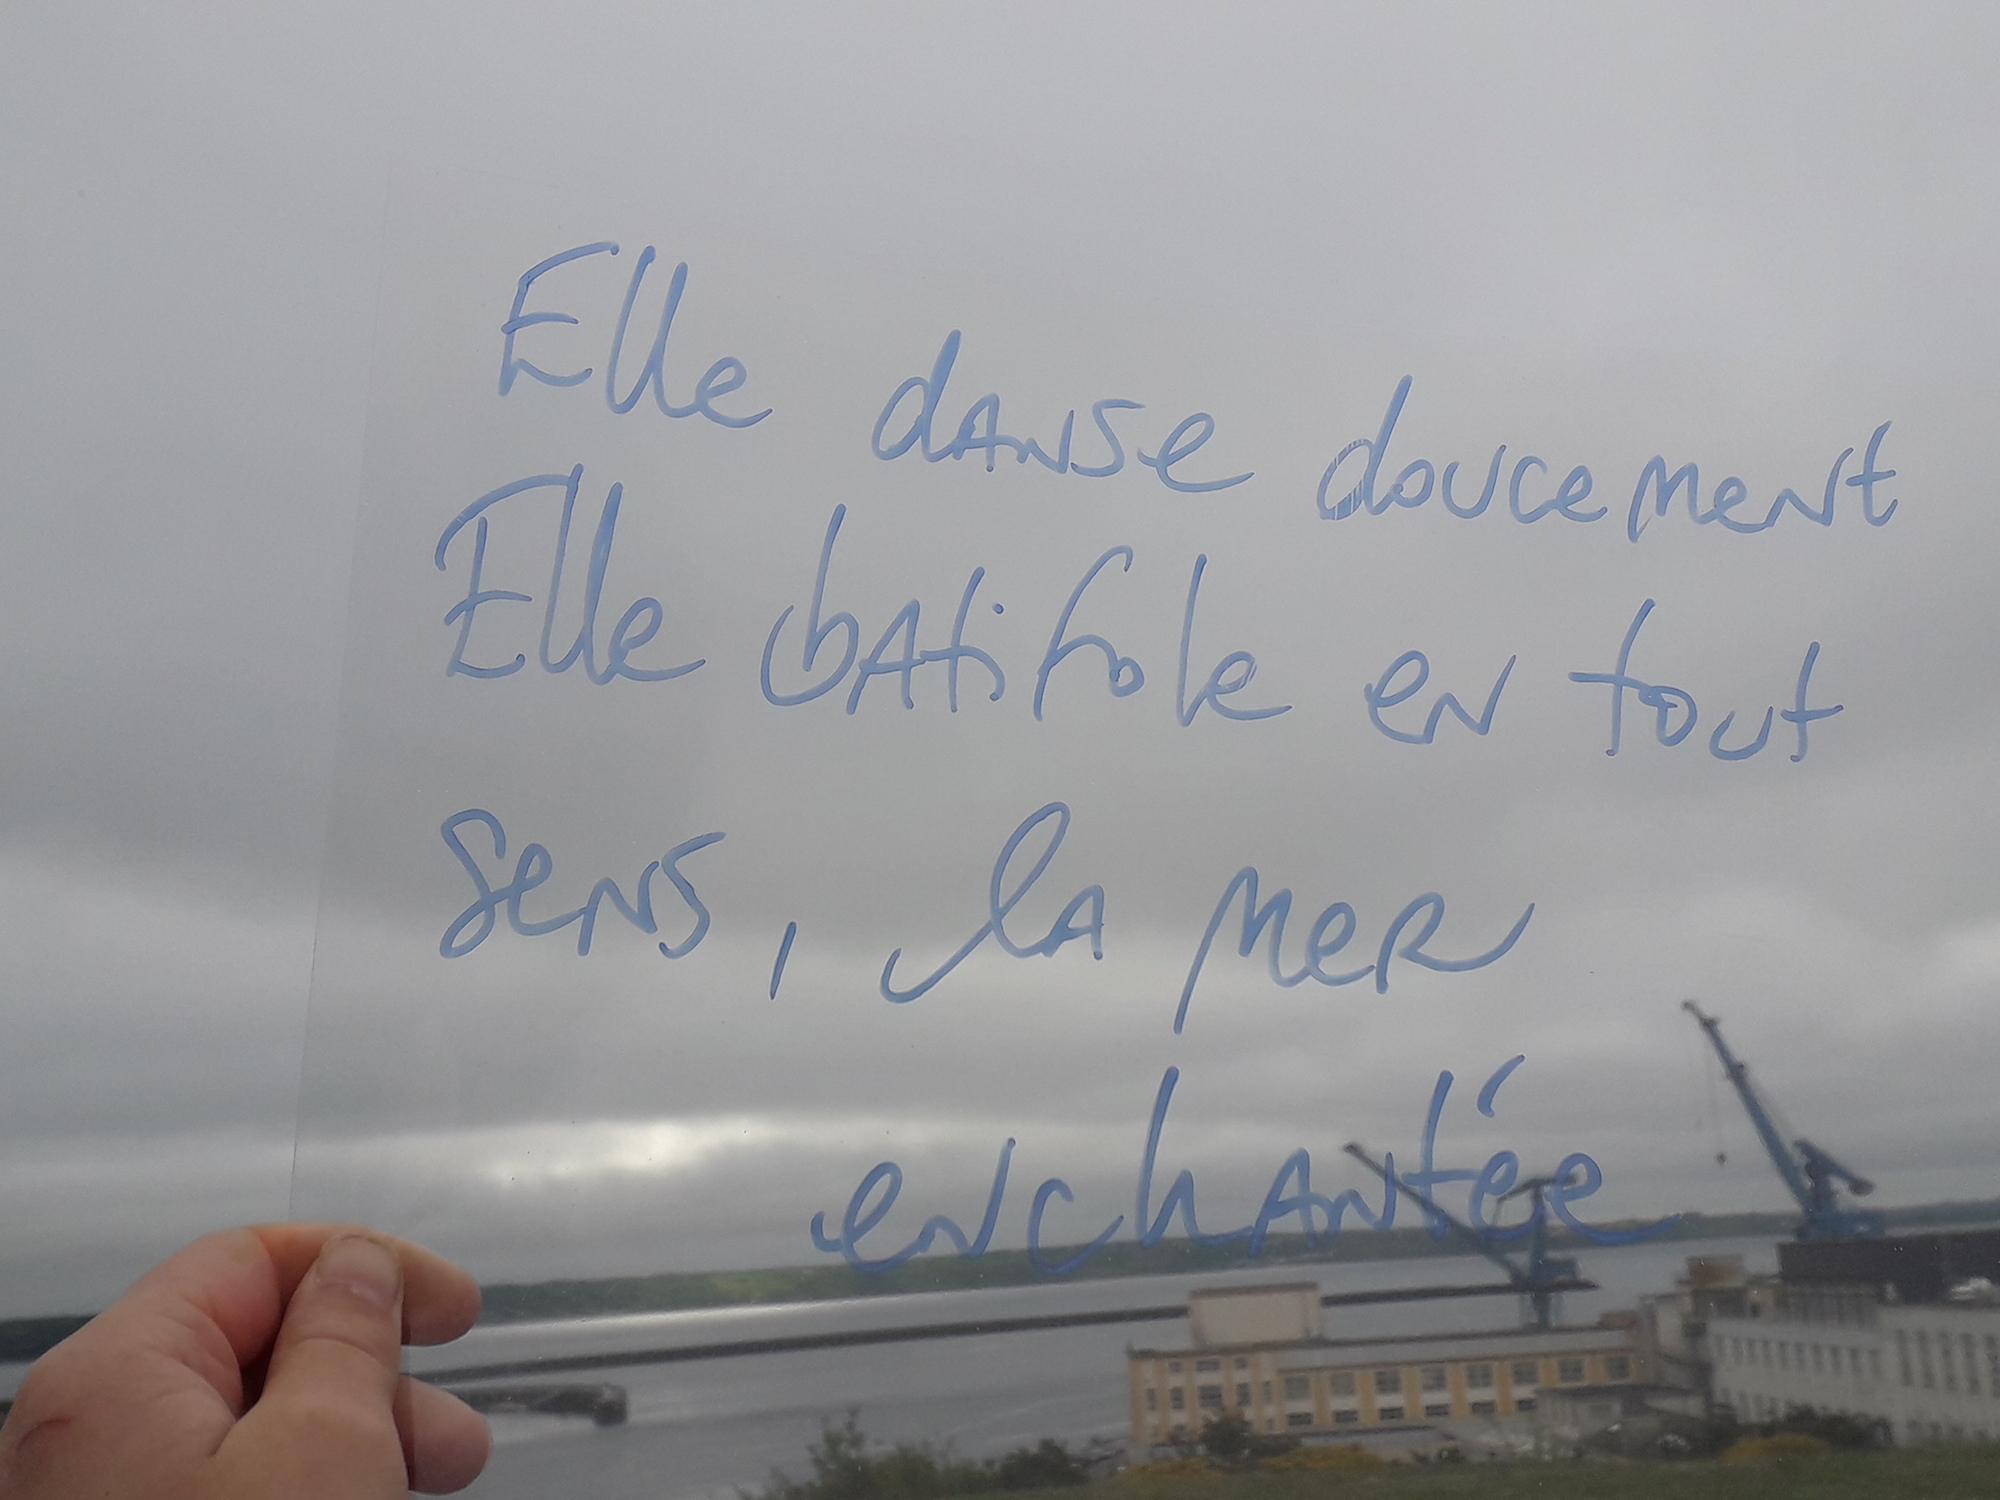 Elle danse doucement
Elle batifole en tout
sens, la mer
enchantée